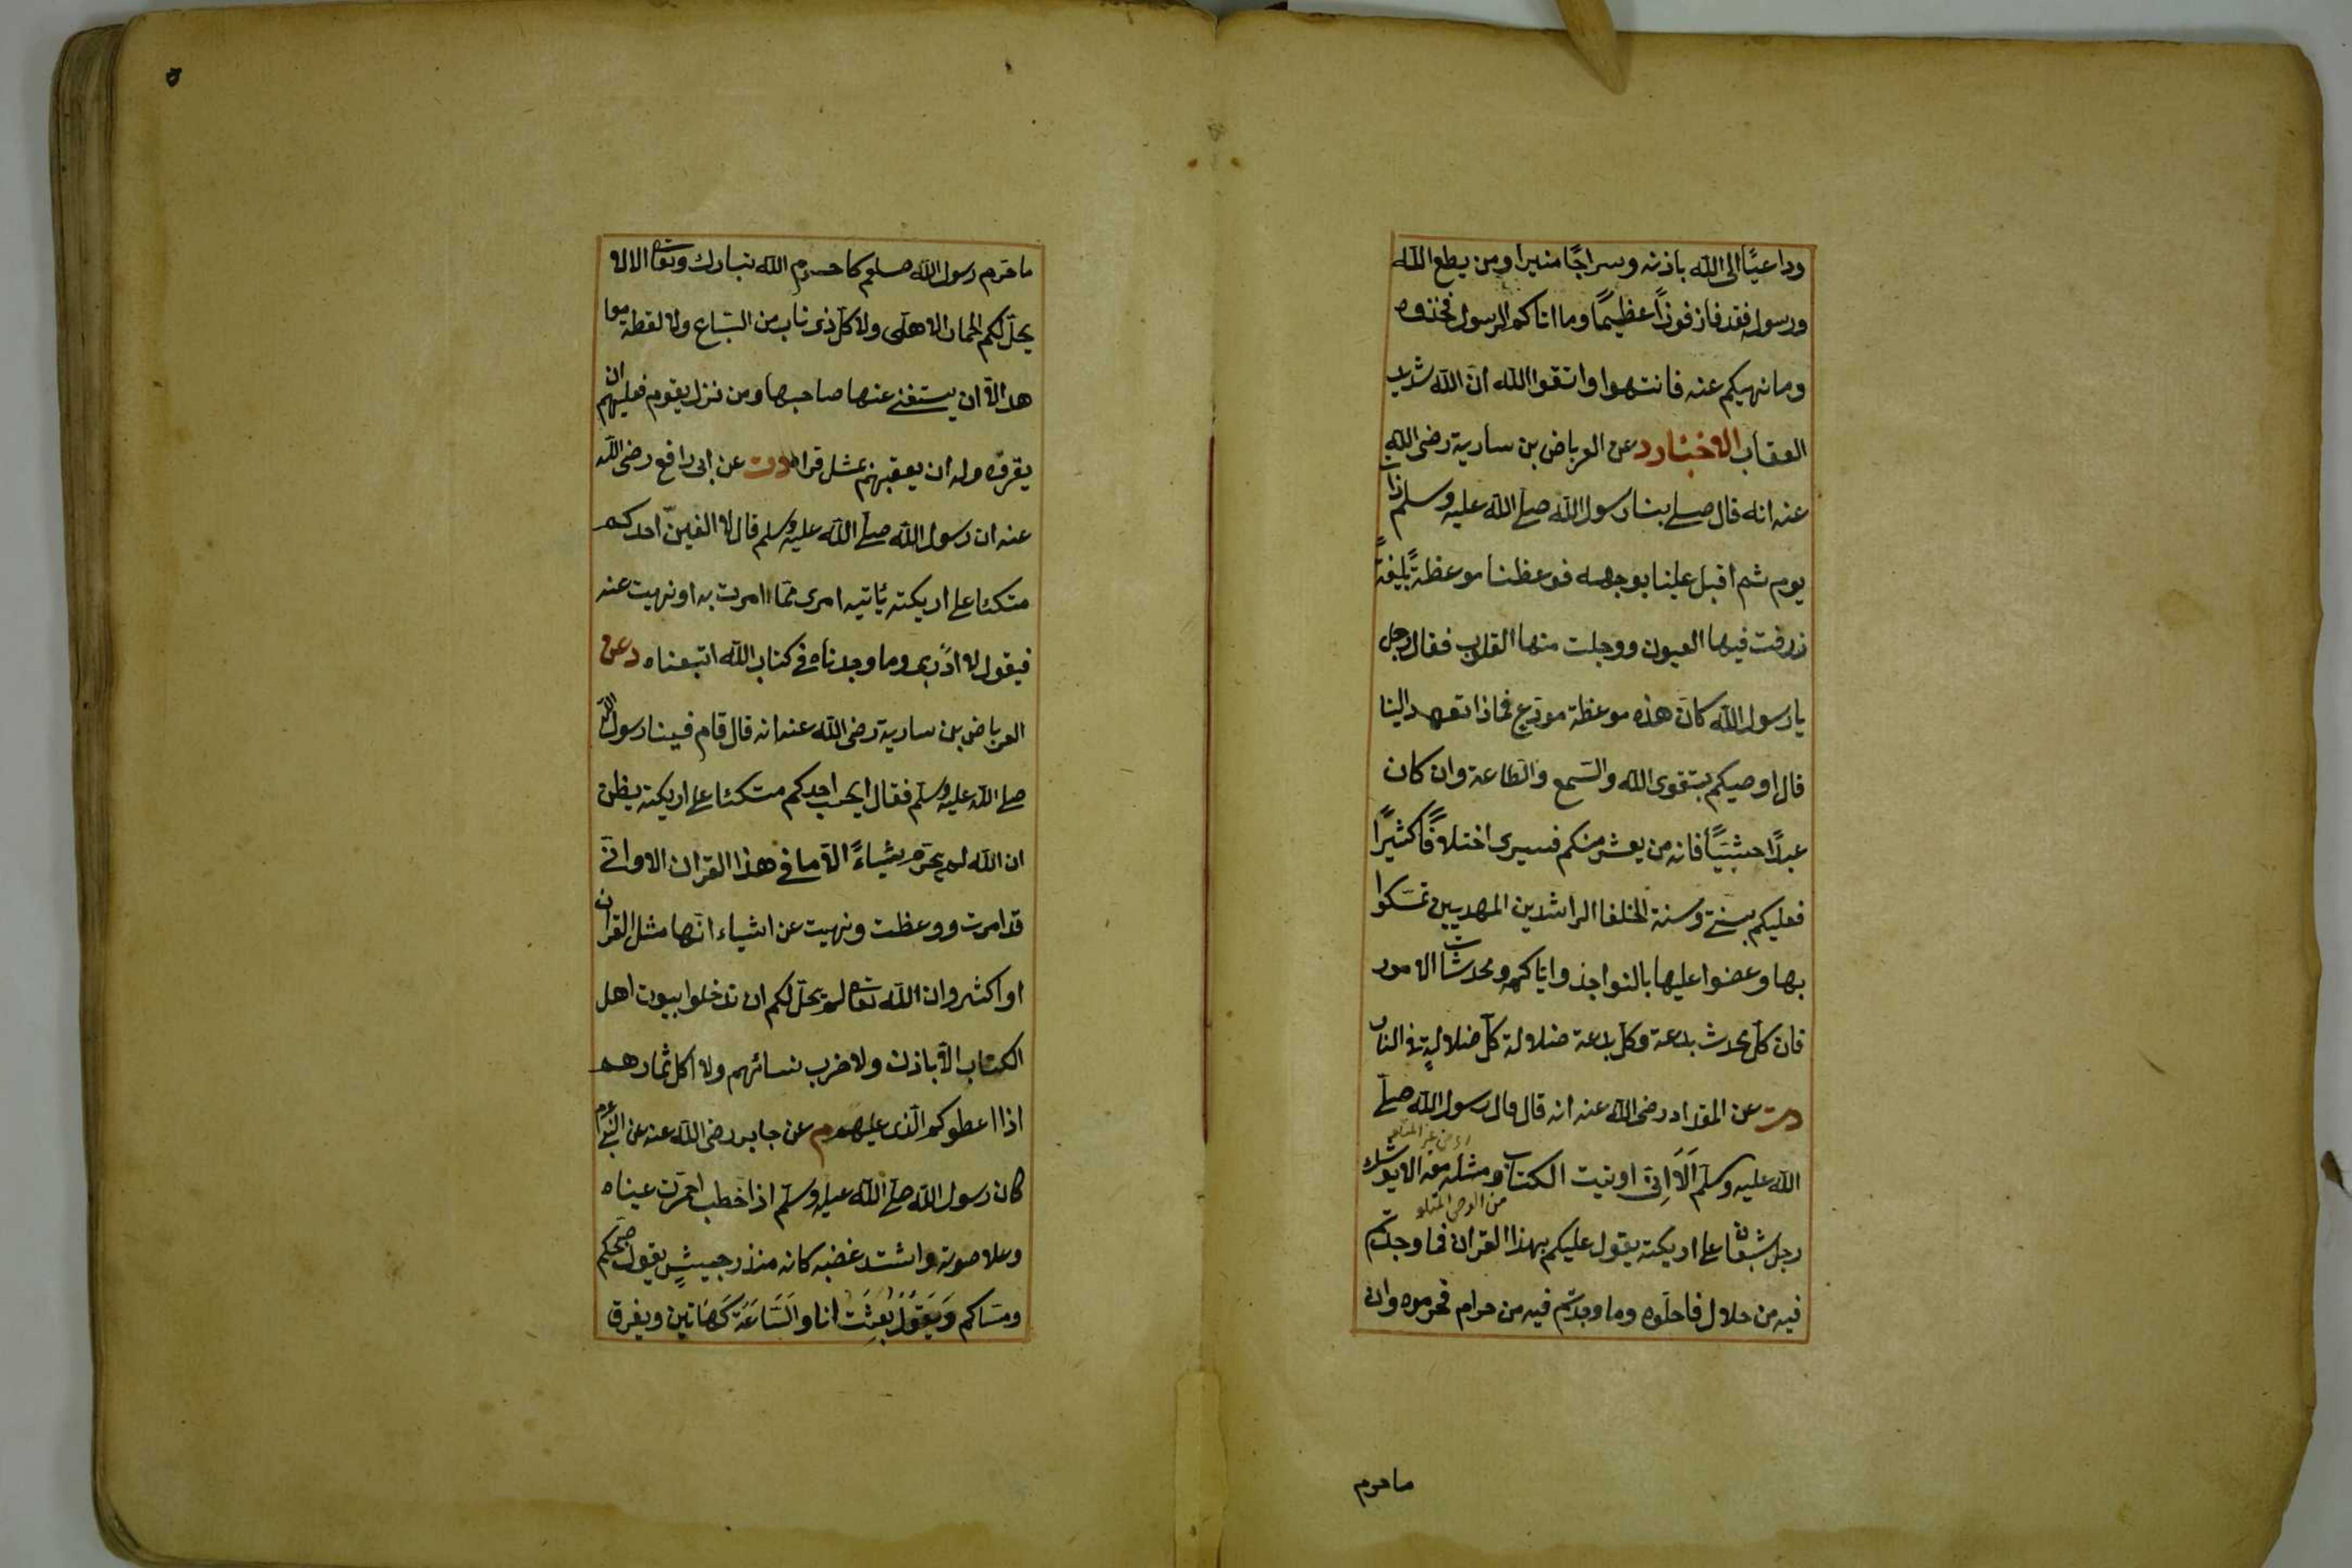 وداعيًا الى الله باذنه وسراجًا منيرا ومن يطع الله
ورسوله فقد فاز فوزًا عظيمًا وما اتاكم الرسول فخذوه
وما نهيكم عنه فانتهوا واتقوا الله ان الله شديد
العقاب الاخبار د عن العرباض بن سارية رضى الله
عنه انه قال صلى بنا رسول الله صلى الله عليه وسلم ذات
يوم ثم اقبل علينا بوجهه فوعظنا موعظةً بليغةً
زرفت فيها العيون ووجلت منها القلوب فقال رجل
يا رسول الله كان هذه موعظة مودع فماذا تعهد الينا
قال اوصيكم بتقوى الله والسمع والطاعة وان كان
عبدًا حبشيًا فانه من يعش منكم فسيرى اختلافًا كثيرًا
فعليكم بسنتى وسنة الخلفا الراشدين المهديين تمسكوا
بها وعضوا عليها بالنواجذ واياكم ومحدثات الامور
فان كل محدث بدعة وكل بدعة ضلالة كل ضلالةٍ فى النار
دت عن المقداد رضى الله عنه انه قال قال رسول الله صلى
الله عليه وسلم اَلَا اِنى اوتيت الكتاب ومثله معه الا يوشك
من الوحى المتلو
رجل شبعان على اريكته يقول عليكم بهذا القران فما وجدتم
فيه من حلال فاحلوه وما وجدتم فيه من حرام فحرموه وان
ما حرم
ما حرم رسول الله صلعم كما حرم الله تبارك وتعا الا لا
يحل لكم الحمار الاهلى ولا كل ذى ناب من السباع ولا لقطة معا
هد الا ان يستغنى عنها صاحبها ومن نزل بقوم فعليهم ان
يقروه وله ان يعقبهم بمثل قراه دت عن ابى رافع رضى الله
عنه ان رسول الله صلى الله عليه وسلم قال لا الفينّ احدكم
متكئا على اريكته يأتيه امرى مما امرت به او نهيت عنه
فيقول لا ادرى وما وجدناه فى كتاب الله اتبعناه د عن
العرباض بن سارية رضى الله عنه انه قال قام فينا رسول الله
صلى الله عليه وسلم فقال ايحسب احدكم متكئا على اريكته يظن
ان الله لم يحرم شياءً الا ما فى هذا القران الا وانى
قد امرت ووعظت ونهيت عن اشياء انها مثل القران
او اكثر وان الله تعا لم يحل لكم ان تدخلوا بيوت اهل
الكتاب الا باذن ولا ضرب نسائهم ولا اكل ثمارهم
اذا اعطوكم الذى عليهم م عن جابر رضى الله عنه عن النبى عم
كان رسول الله صلى الله عليه وسلم اذا خطب احمرت عيناه
وعلا صوته واشتد غضبه كانه منذر جيشٍ يقول صبحكم
ومساكم وَيَقُولُ بُعِثْتُ انا والسَّاعَةَ كَهَاتين ويفرق